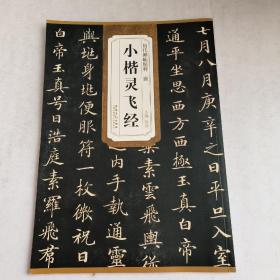 七月八月庚辛之日平旦入
通平坐思西方西極玉真白帝
素雲飛輿從
内手執通靈
历代碑帖精粹 唐
小楷灵飞经
主编
與兆身兆便服符一枚微祝曰
白帝玉真号曰浩庭素羅飛帬